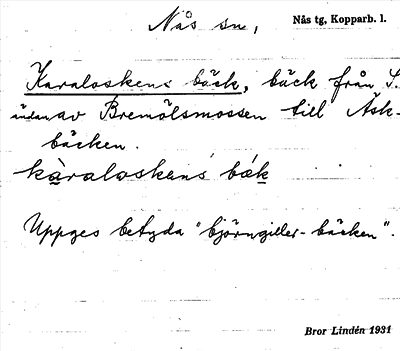 Nås sn, Nås tg, Kopparb. l.
Karaloskens bäck, bäck från S.
ändan av Bremölsmossen till Ask-
bäcken.
kàraloskens bák
Uppges betyda "björngiller-bäcken".
Bror Lindén 1931